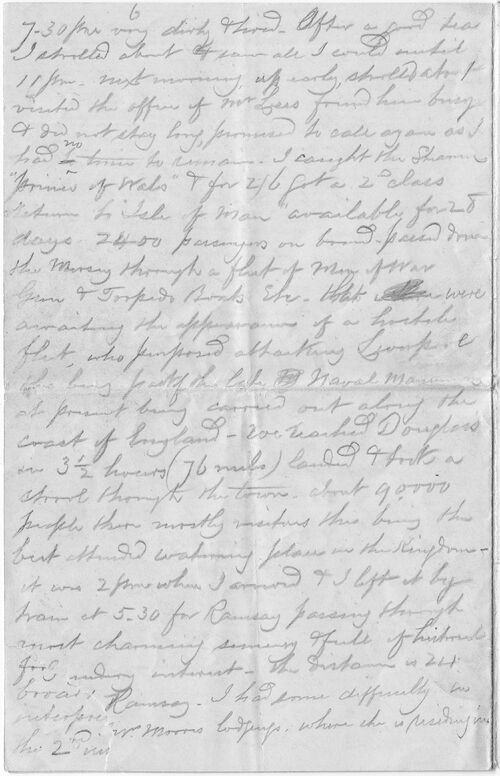 6
7-30 pm very dirty & tired. After a good tea
I strolled about & saw all I could until
11 pm. next morning, up early, strolled about
visited the office of Mr Lees found him busy
& did not stay long, promised to call again as I
had no time to remain. I caught the Steamer
"Prince of Wales" & for 2/6 got a 2d class
return to "Isle of Man" available for 28
days. 2400 passengers on board. passed down
the Mersey through a fleet of Men of War
Gun & Torpedo Boats Etc - that were
awaiting the appearance of a hostile
fleet, who purposed attacking Liverpool
this being part of the late Naval
at present being carried out along the
coast of England - We reached Douglass
in 3½ hours (76 miles) landed & took a
stroll through the town. about 90000
people there mostly visitors this being the
best attended watering place in the Kingdom -
it was 2 pm when I arrived & I left it by
train at 5-30 for Ramsay passing through
most charming scenery & full of historical
for interest - The distance is 24
Ramsay - I had some difficulty in
Mr Morris lodgings. where she is residing in
the 2nd